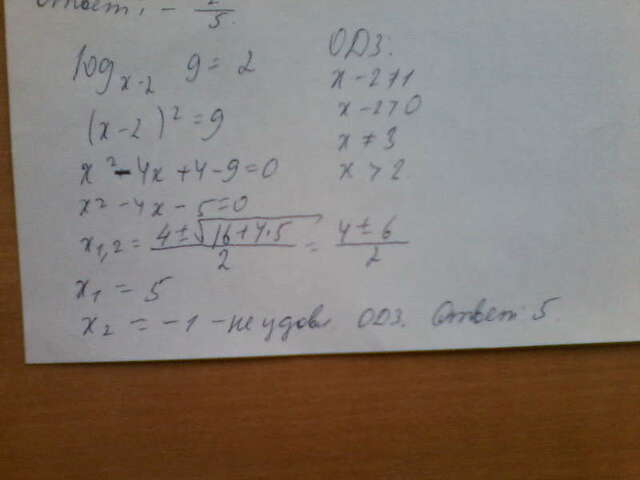 Ответ: - 2/5.
log_{x-2} 9 = 2
(x-2)² = 9
x² - 4x + 4 - 9 = 0
x² - 4x - 5 = 0
x_{1,2} = (4 ± √(16+4·5))/2 = (4 ± 6)/2
x₁ = 5
x₂ = -1 - не удовл ОДЗ. Ответ: 5.
ОДЗ:
x - 2 ≠ 1
x - 2 > 0
x ≠ 3
x > 2